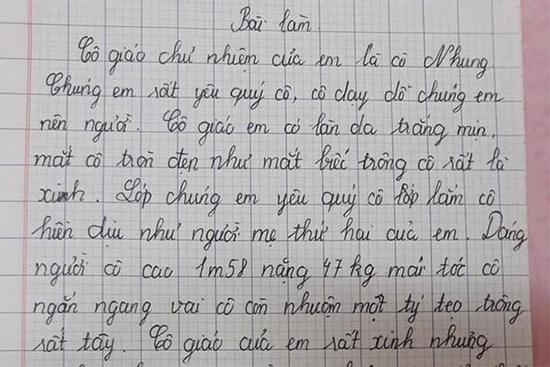 Bài làm
Cô giáo chư nhiệm của em là cô Nhung
Chúng em rất yêu quý cô, cô day dỗ chúng em
nên người. Cô giáo em có làn da trắng mịn,
mắt cô tròn đẹn như mắt biếc trông cô rất là
xinh. Lớp chúng em yêu quý cô lắm cô
hiền dịu như người mẹ thứ hai của em. Dáng
người cô cao 1m58 nặng 47 kg mái tóc cô
ngắn ngang vai cô còn nhuộm một tý tẹo trông
rất tây. Cô giáo của em rất xinh nhưng